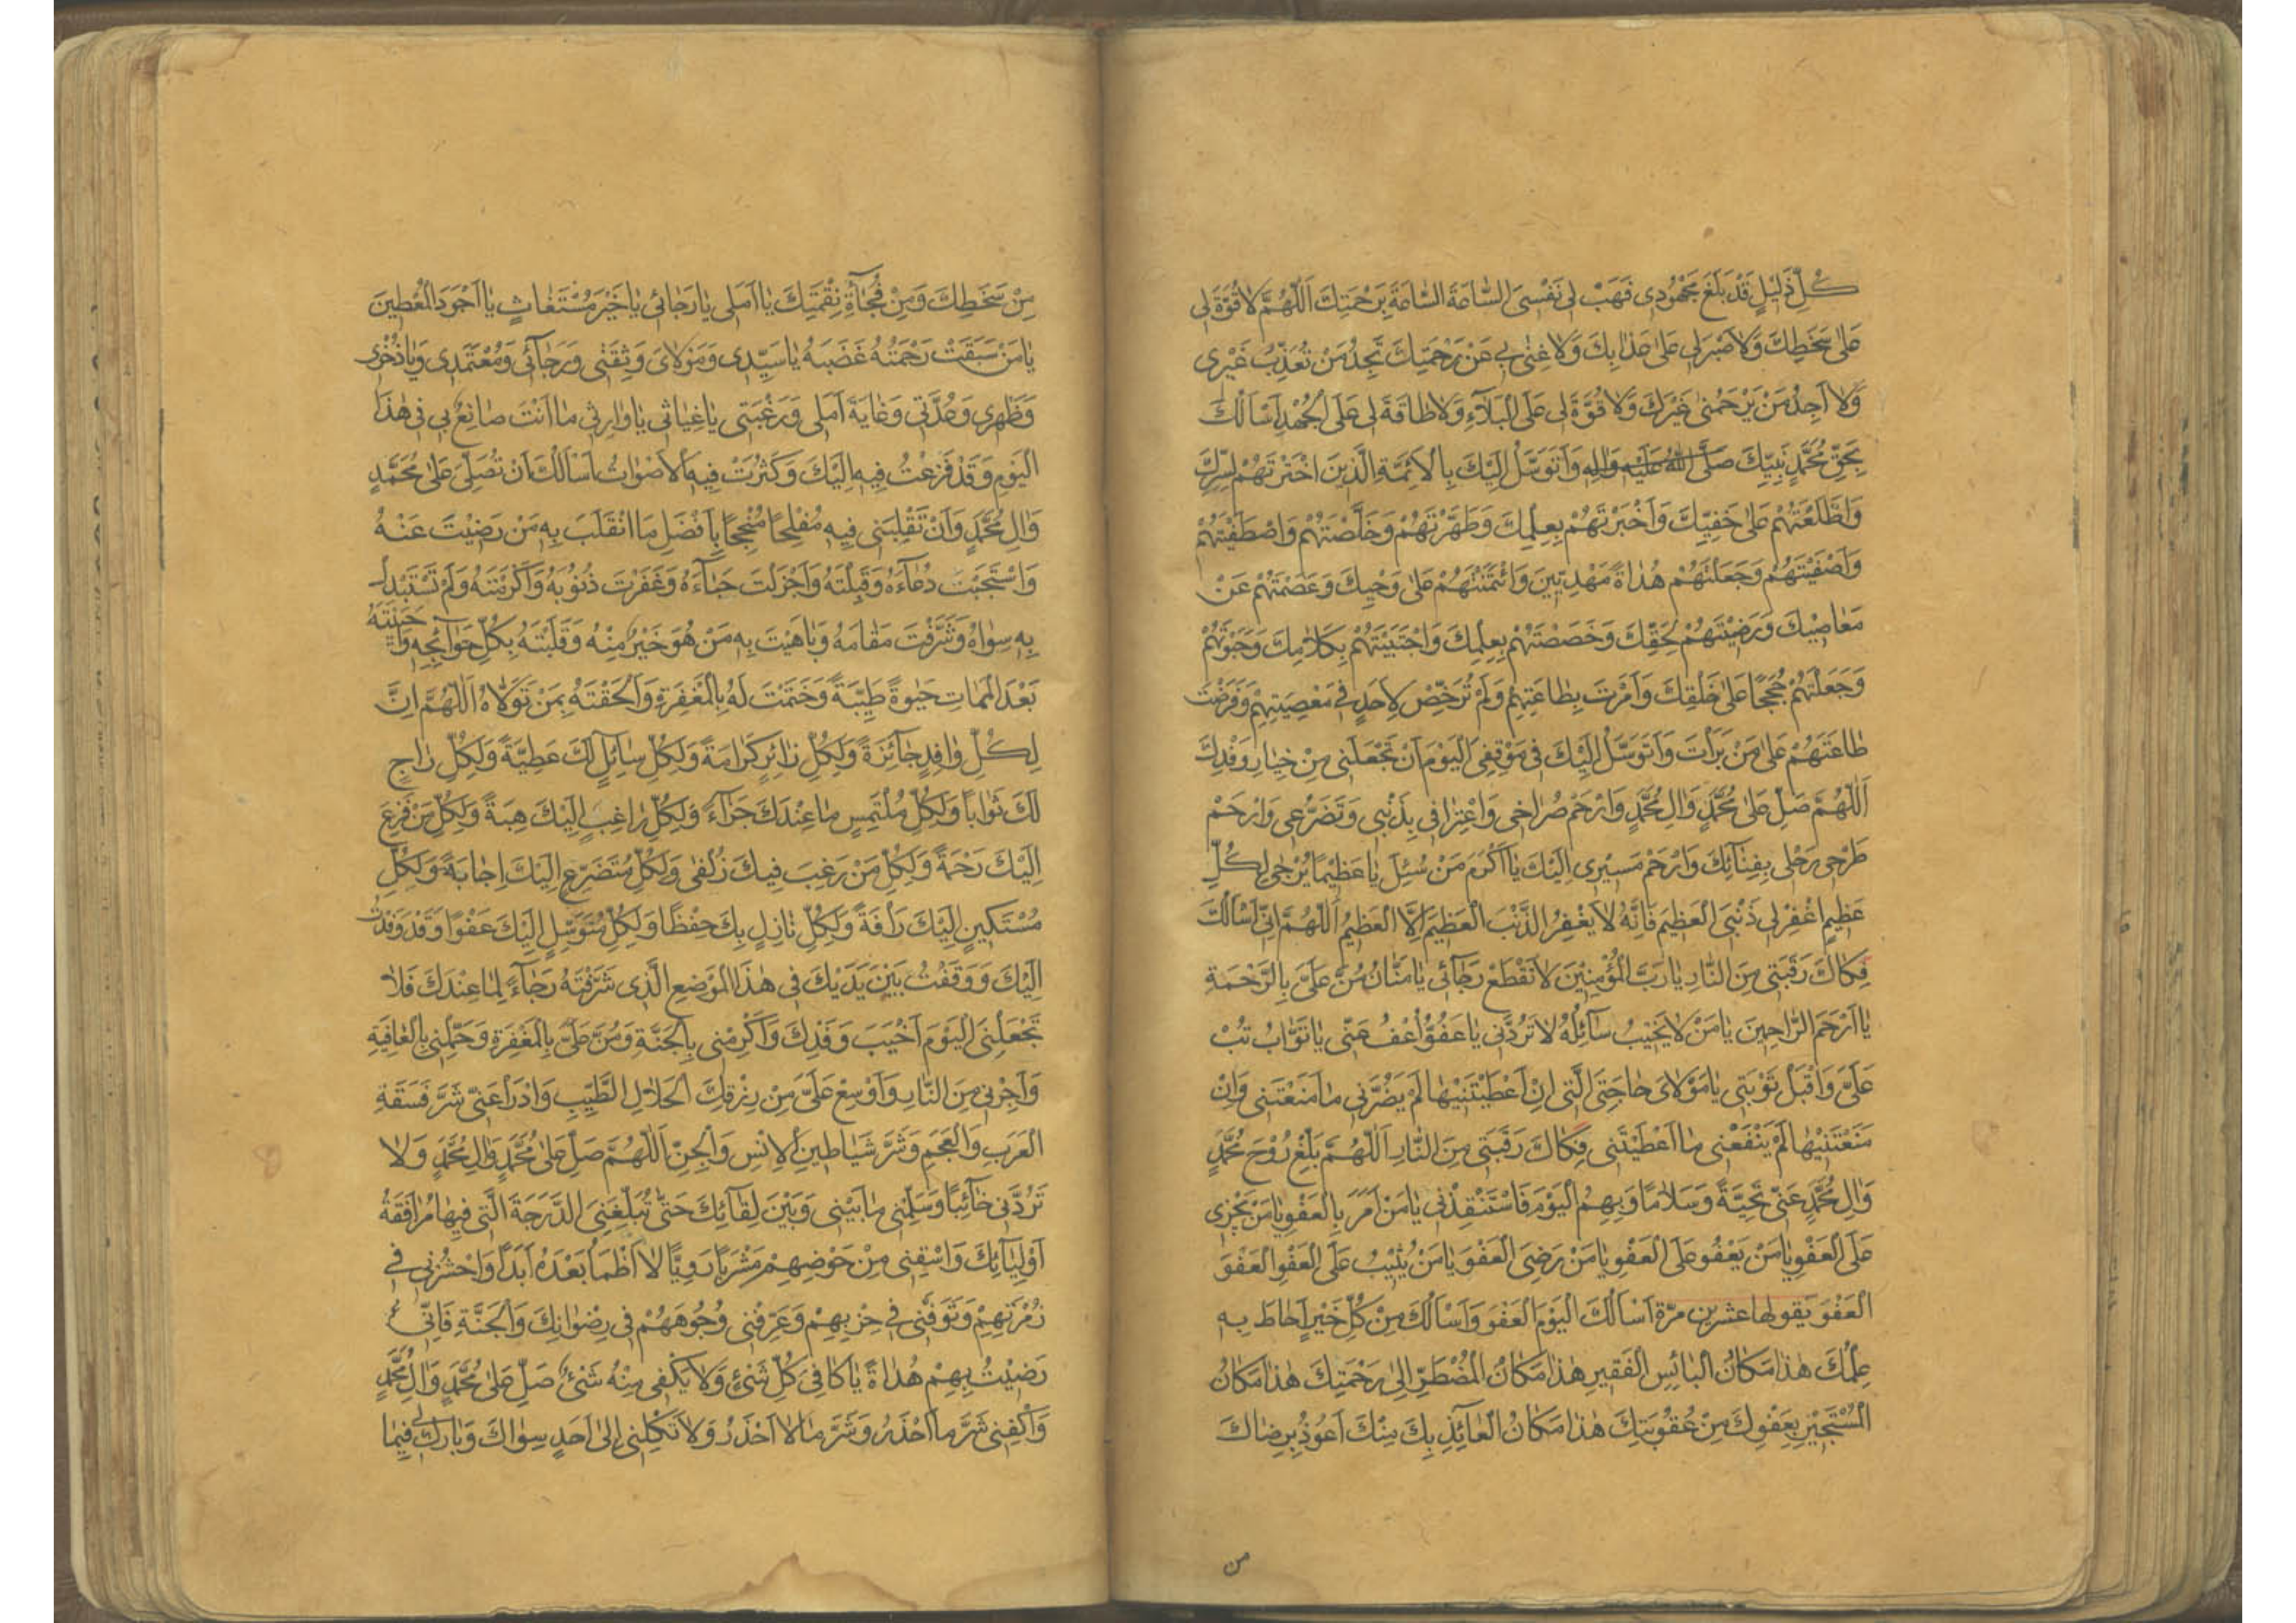 كُلِّ ذَلِيْلٍ قَدْ بَلَغَ مَجْهُودِى فَهَبْ لِى نَفْسِىَ السّٰاعَةَ السّٰاعَةَ بِرَحْمَتِكَ اَللّٰهُمَّ لاٰ قُوَّةَ لِى
عَلىٰ سَخَطِكَ وَلاٰ صَبْرَ لِى عَلىٰ عَذٰابِكَ وَلاٰ غِنىٰ بِى عَنْ رَحْمَتِكَ تَجِدُ مَنْ تُعَذِّبُ غَيْرِى
وَلاٰ اَجِدُ مَنْ يَرْحَمُنِى غَيْرَكَ وَلاٰ قُوَّةَ لِى عَلَى الْبَلاٰۤءِ وَلاٰ طٰاقَةَ لِى عَلَى الْجُهْدِ اَسْاَلُكَ
بِحَقِّ مُحَمَّدٍ نَبِيِّكَ صَلَّى اللهُ عَلَيْهِ وَاٰلِهِ وَاَتَوَسَّلُ اِلَيْكَ بِالْاَئِمَّةِ الَّذِينَ اخْتَرْتَهُمْ لِسِرِّكَ
وَاطَّلَعْتَهُمْ عَلىٰ خَفِيِّكَ وَاَخْبَرْتَهُمْ بِعِلْمِكَ وَطَهَّرْتَهُمْ وَخَلَّصْتَهُمْ وَاصْطَفَيْتَهُمْ
وَاَصْفَيْتَهُمْ وَجَعَلْتَهُمْ هُدٰاةً مَهْدِيِّينَ وَائْتَمَنْتَهُمْ عَلىٰ وَحْيِكَ وَعَصَمْتَهُمْ عَنْ
مَعٰاصِيْكَ وَرَضِيْتَهُمْ لِحَقِّكَ وَخَصَصْتَهُمْ بِعِلْمِكَ وَاجْتَبَيْتَهُمْ بِكَلاٰمِكَ وَحَبَوْتَهُمْ
وَجَعَلْتَهُمْ حُجَجًا عَلىٰ خَلْقِكَ وَاَمَرْتَ بِطٰاعَتِهِمْ وَلَمْ تُرَخِّصْ لِاَحَدٍ فِى مَعْصِيَتِهِمْ وَفَرَضْتَ
طٰاعَتَهُمْ عَلىٰ مَنْ بَرَأْتَ وَاَتَوَسَّلُ اِلَيْكَ فِى مَوْقِفِىَ الْيَوْمَ اَنْ تَجْعَلَنِى مِنْ خِيٰارِ وَفْدِكَ
اَللّٰهُمَّ صَلِّ عَلىٰ مُحَمَّدٍ وَاٰلِ مُحَمَّدٍ وَارْحَمْ صُرٰاخِى وَاعْتِرٰافِى بِذَنْبِى وَتَضَرُّعِى وَارْحَمْ
طَرْحِى رَحْلِى بِفِنٰاۤئِكَ وَارْحَمْ مَسِيْرِى اِلَيْكَ يٰا اَكْرَمَ مَنْ سُئِلَ يٰا عَظِيْمًا يُرْجىٰ لِكُلِّ
عَظِيمٍ اغْفِرْ لِى ذَنْبِىَ الْعَظِيمَ فَاِنَّهُ لاٰ يَغْفِرُ الذَّنْبَ الْعَظِيمَ اِلَّا الْعَظِيمُ اَللّٰهُمَّ اِنِّى اَسْاَلُكَ
فِكٰاكَ رَقَبَتِى مِنَ النّٰارِ يٰا رَبَّ الْمُؤْمِنِيْنَ لاٰ تَقْطَعْ رَجٰاۤئِى يٰا مَنّٰانُ مُنَّ عَلَىَّ بِالرَّحْمَةِ
يٰا اَرْحَمَ الرّٰاحِمِينَ يٰا مَنْ لاٰ يَخِيْبُ سٰاۤئِلُهُ لاٰ تَرُدَّنِى يٰا عَفُوُّ اُعْفُ عَنِّى يٰا تَوّٰابُ تُبْ
عَلَىَّ وَاقْبَلْ تَوْبَتِى يٰا مَوْلاٰىَ حٰاجَتِىَ الَّتِى اِنْ اَعْطَيْتَنِيْهٰا لَمْ يَضُرَّنِى مٰا مَنَعْتَنِى وَاِنْ
مَنَعْتَنِيْهٰا لَمْ يَنْفَعْنِى مٰا اَعْطَيْتَنِى فِكٰاكَ رَقَبَتِى مِنَ النّٰارِ اَللّٰهُمَّ بَلِّغْ رُوْحَ مُحَمَّدٍ
وَاٰلِ مُحَمَّدٍ عَنِّى تَحِيَّةً وَسَلاٰمًا وَبِهِمُ الْيَوْمَ فَاسْتَنْقِذْنِى يٰا مَنْ اَمَرَ بِالْعَفْوِ يٰا مَنْ يَجْزِى
عَلَى الْعَفْوِ يٰا مَنْ يَعْفُو عَلَى الْعَفْوِ يٰا مَنْ رَضِىَ الْعَفْوَ يٰا مَنْ يُثِيْبُ عَلَى الْعَفْوِ الْعَفْوَ
الْعَفْوَ يقولها عشرين مرّة اَسْاَلُكَ الْيَوْمَ الْعَفْوَ وَاَسْاَلُكَ مِنْ كُلِّ خَيْرٍ اَحٰاطَ بِهِ
عِلْمُكَ هٰذٰا مَكٰانُ الْبٰائِسِ الْفَقِيرِ هٰذٰا مَكٰانُ الْمُضْطَرِّ اِلىٰ رَحْمَتِكَ هٰذٰا مَكٰانُ
الْمُسْتَجِيْرِ بِعَفْوِكَ مِنْ عُقُوْبَتِكَ هٰذٰا مَكٰانُ الْعٰاۤئِذِ بِكَ مِنْكَ اَعُوْذُ بِرِضٰاكَ
من
مِنْ سَخَطِكَ وَمِنْ فُجْاَۤةِ نِقْمَتِكَ يٰا اَمَلِى يٰا رَجٰائِى يٰا خَيْرَ مُسْتَغٰاثٍ يٰا اَجْوَدَ الْمُعْطِينَ
يٰا مَنْ سَبَقَتْ رَحْمَتُهُ غَضَبَهُ يٰا سَيِّدِى وَمَوْلاٰىَ وَثِقَتِى وَرَجٰاۤئِى وَمُعْتَمَدِى وَيٰا ذُخْرِى
وَظَهْرِى وَعُدَّتِى وَغٰايَةَ اَمَلِى وَرَغْبَتِى يٰا غِيٰاثِى يٰا وٰارِثِى مٰا اَنْتَ صٰانِعٌ بِى فِى هٰذَا
الْيَوْمِ وَقَدْ فَزِعْتُ فِيهِ اِلَيْكَ وَكَثُرَتْ فِيهِ الْاَصْوٰاتُ اَسْاَلُكَ اَنْ تُصَلِّىَ عَلىٰ مُحَمَّدٍ
وَاٰلِ مُحَمَّدٍ وَاَنْ تَقْلِبَنِى فِيهِ مُفْلِحًا مُنْجِحًا بِاَفْضَلِ مَا انْقَلَبَ بِهِ مَنْ رَضِيْتَ عَنْهُ
وَاسْتَجَبْتَ دُعٰاۤءَهُ وَقَبِلْتَهُ وَاَجْزَلْتَ حَبٰاۤءَهُ وَغَفَرْتَ ذُنُوْبَهُ وَاَكْرَمْتَهُ وَلَمْ تَسْتَبْدِلْ
بِهِ سِوٰاهُ وَشَرَّفْتَ مَقٰامَهُ وَبٰاهَيْتَ بِهِ مَنْ هُوَ خَيْرٌ مِنْهُ وَقَلَبْتَهُ بِكُلِّ حَوٰاۤئِجِهِ وَاَحْيَيْتَهُ
بَعْدَ الْمَمٰاتِ حَيٰوةً طَيِّبَةً وَخَتَمْتَ لَهُ بِالْمَغْفِرَةِ وَاَلْحَقْتَهُ بِمَنْ تَوَلاّٰهُ اَللّٰهُمَّ اِنَّ
لِكُلِّ وٰافِدٍ جٰاۤئِزَةً وَلِكُلِّ زٰائِرٍ كَرٰامَةً وَلِكُلِّ سٰاۤئِلٍ لَكَ عَطِيَّةً وَلِكُلِّ رٰاجٍ
لَكَ ثَوٰابًا وَلِكُلِّ مُلْتَمِسٍ مٰا عِنْدَكَ جَزٰاۤءً وَلِكُلِّ رٰاغِبٍ اِلَيْكَ هِبَةً وَلِكُلِّ مَنْ فَزِعَ
اِلَيْكَ رَحْمَةً وَلِكُلِّ مَنْ رَغِبَ فِيكَ زُلْفىٰ وَلِكُلِّ مُتَضَرِّعٍ اِلَيْكَ اِجٰابَةً وَلِكُلِّ
مُسْتَكِينٍ اِلَيْكَ رَأْفَةً وَلِكُلِّ نٰازِلٍ بِكَ حِفْظًا وَلِكُلِّ مُتَوَسِّلٍ اِلَيْكَ عَفْوًا وَقَدْ وَفَدْتُ
اِلَيْكَ وَوَقَفْتُ بَيْنَ يَدَيْكَ فِى هٰذَا الْمَوْضِعِ الَّذِى شَرَّفْتَهُ رَجٰاۤءً لِمٰا عِنْدَكَ فَلاٰ
تَجْعَلْنِى الْيَوْمَ اَخْيَبَ وَفْدِكَ وَاَكْرِمْنِى بِالْجَنَّةِ وَمُنَّ عَلَىَّ بِالْمَغْفِرَةِ وَجَمِّلْنِى بِالْعٰافِيَةِ
وَاَجِرْنِى مِنَ النّٰارِ وَاَوْسِعْ عَلَىَّ مِنْ رِزْقِكَ الْحَلاٰلِ الطَّيِّبِ وَادْرَأْ عَنِّى شَرَّ فَسَقَةِ
الْعَرَبِ وَالْعَجَمِ وَشَرَّ شَيٰاطِينِ الْاِنْسِ وَالْجِنِّ اَللّٰهُمَّ صَلِّ عَلىٰ مُحَمَّدٍ وَاٰلِ مُحَمَّدٍ وَلاٰ
تَرُدَّنِى خٰاۤئِبًا وَسَلِّمْنِى مٰا بَيْنِى وَبَيْنَ لِقٰاۤئِكَ حَتّٰى تُبَلِّغَنِىَ الدَّرَجَةَ الَّتِى فِيهٰا مُرٰافَقَةُ
اَوْلِيٰاۤئِكَ وَاسْقِنِى مِنْ حَوْضِهِمْ مَشْرَبًا رَوِيًّا لاٰ اَظْمَأُ بَعْدَهُ اَبَدًا وَاحْشُرْنِى فِى
زُمْرَتِهِمْ وَتَوَفَّنِى فِى حِزْبِهِمْ وَعَرِّفْنِى وُجُوهَهُمْ فِى رِضْوٰانِكَ وَالْجَنَّةِ فَاِنِّى
رَضِيْتُ بِهِمْ هُدٰاةً يٰا كٰافِىَ كُلِّ شَىْءٍ وَلاٰ يَكْفِى مِنْهُ شَىْءٌ صَلِّ عَلىٰ مُحَمَّدٍ وَاٰلِ مُحَمَّدٍ
وَاكْفِنِى شَرَّ مٰا اَحْذَرُ وَشَرَّ مٰا لاٰ اَحْذَرُ وَلاٰ تَكِلْنِى اِلىٰ اَحَدٍ سِوٰاكَ وَبٰارِكْ لِى فِيمٰا